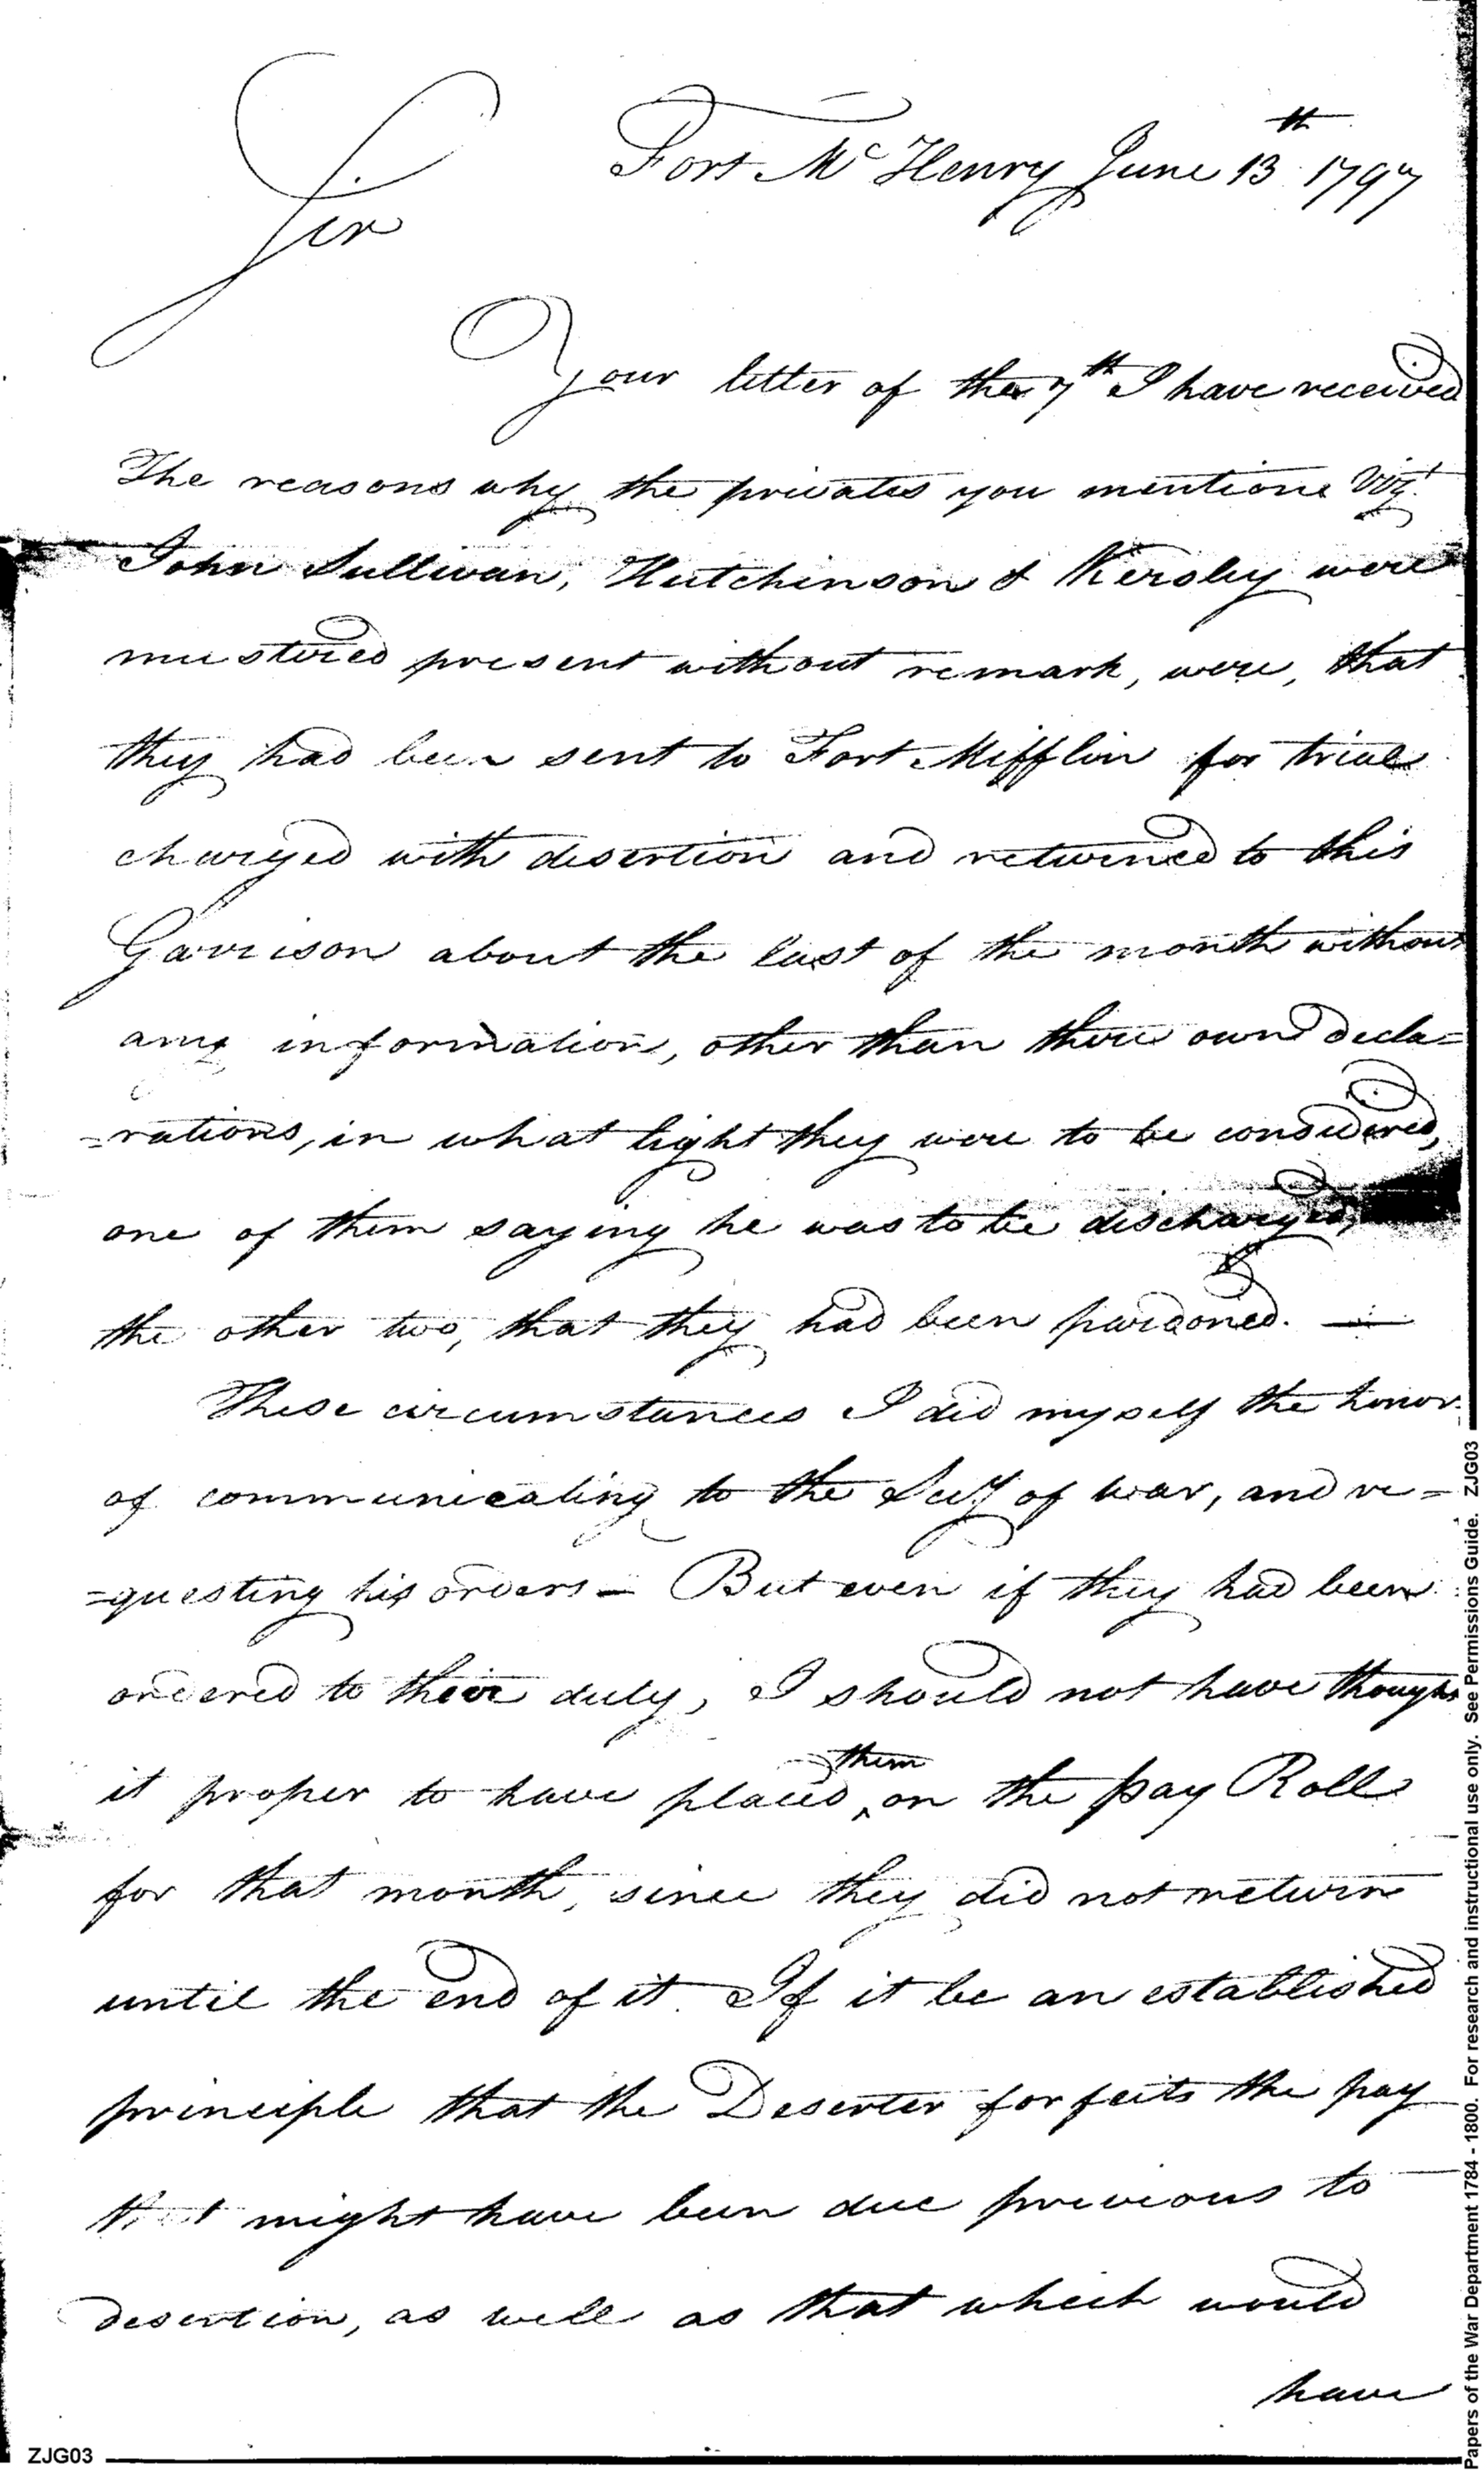 Fort McHenry June 13th 1797
Sir
Your letter of the 7th I have received
The reasons why the privates you mention Vizt
John Sullivan, Hutchinson & Kersley were
mustered present without remark, were, that
they had been sent to Fort Mifflin for trial
charged with desertion and returned to this
Garrison about the last of the month without
any information, other than there own decla=
=rations, in what light they were to be considered,
one of them saying he was to be discharged,
the other two, that they had been pardoned. —
These circumstances I did myself the honor
of communicating to the Secy of war, and re=
=questing his orders – But even if they had been
ordered to their duty, I should not have thought
it proper to have placed ‸them on the pay Roll
for that month, since they did not return
until the end of it. If it be an established
principle that the Deserter forfeits the pay
that might have been due previous to
desertion, as well as that which would
have
ZJG03
Papers of the War Department 1784 - 1800. For research and instructional use only. See Permissions Guide. ZJG03